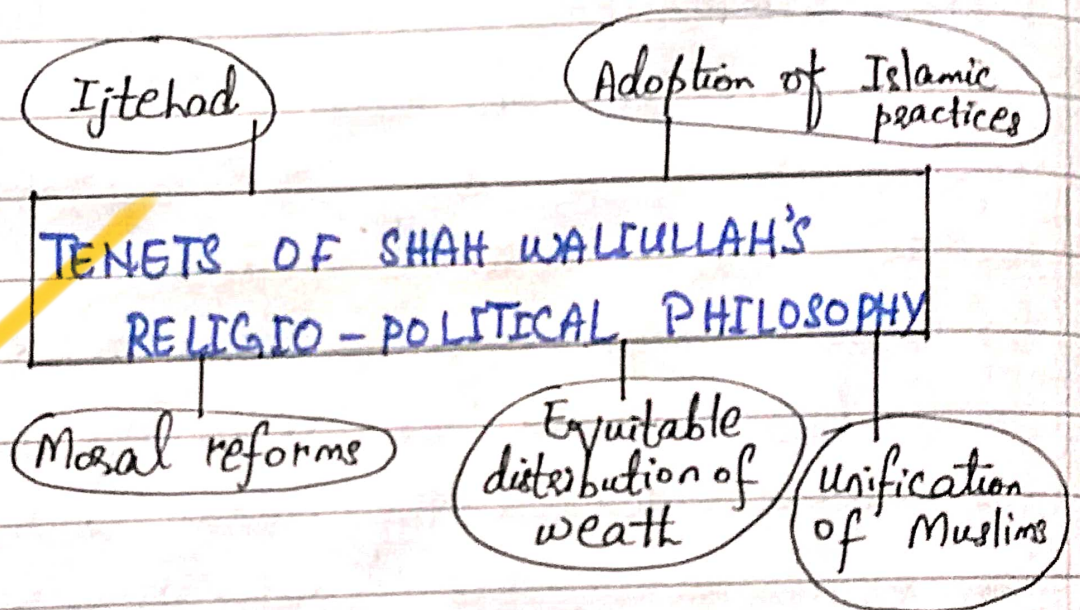 Ijtehad
Adoption of Islamic
practices
TENETS OF SHAH WALIULLAH'S
RELIGIO - POLITICAL PHILOSOPHY
Moral reforms
Equitable
distribution of
weath
Unification
of Muslims